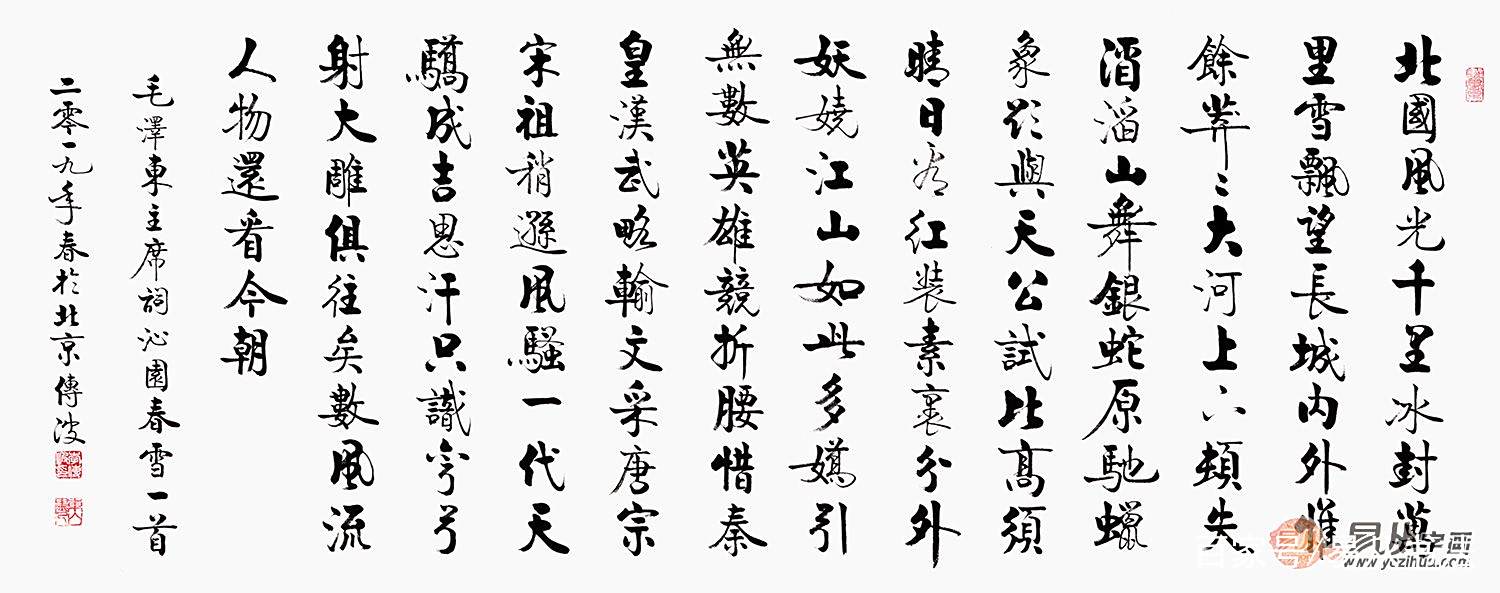 北國風光千里冰封萬
里雪飄望長城內外惟
餘莽〻大河上下頓失
滔滔山舞銀蛇原馳蠟
象欲與天公試比高須
晴日看紅裝素裹分外
妖嬈江山如此多嬌引
無數英雄競折腰惜秦
皇漢武略輸文采唐宗
宋祖稍遜風騷一代天
驕成吉思汗只識彎弓
射大雕俱往矣數風流
人物還看今朝
毛澤東主席詞沁園春雪一首
二零一九年春於北京傳波
易从字画
www.yczihua.com
百家号/